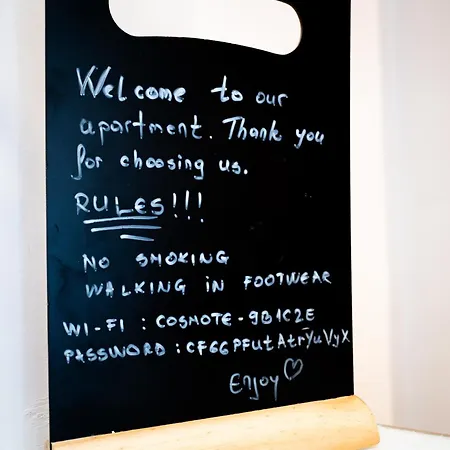 Welcome to our
apartment. Thank you
for choosing us.
RULES!!!
NO SMOKING
WALKING IN FOOTWEAR
WI-FI : COSMOTE-9B1C2E
PASSWORD : CF66PFUtAtrYuVyX
Enjoy ♡